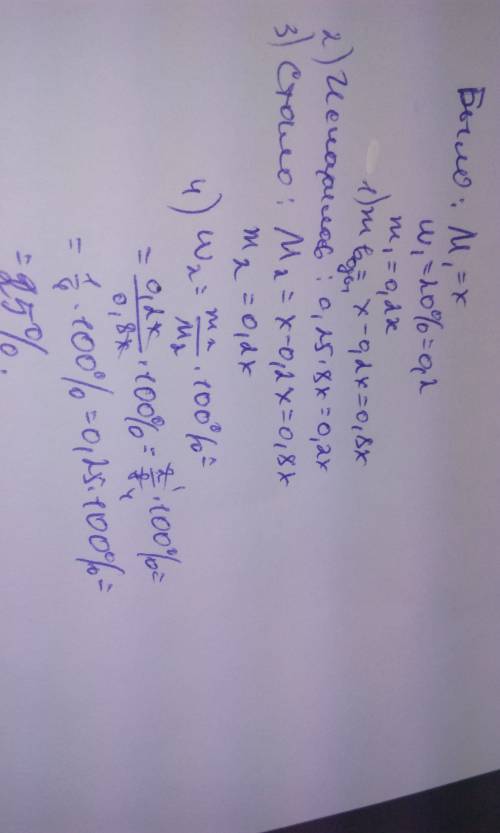 Было: M₁ = x
w₁ = 20% = 0,2
m₁ = 0,2x
1) m воды = x - 0,2x = 0,8x
2) Испарилось: 0,25·8x = 0,2x
3) Стало: M₂ = x - 0,2x = 0,8x
m₂ = 0,2x
4) w₂ = m₂/M₂ · 100% =
= 0,2x/0,8x · 100% = 2/8 · 100% =
= 1/4 · 100% = 0,25 · 100% =
= 25%.